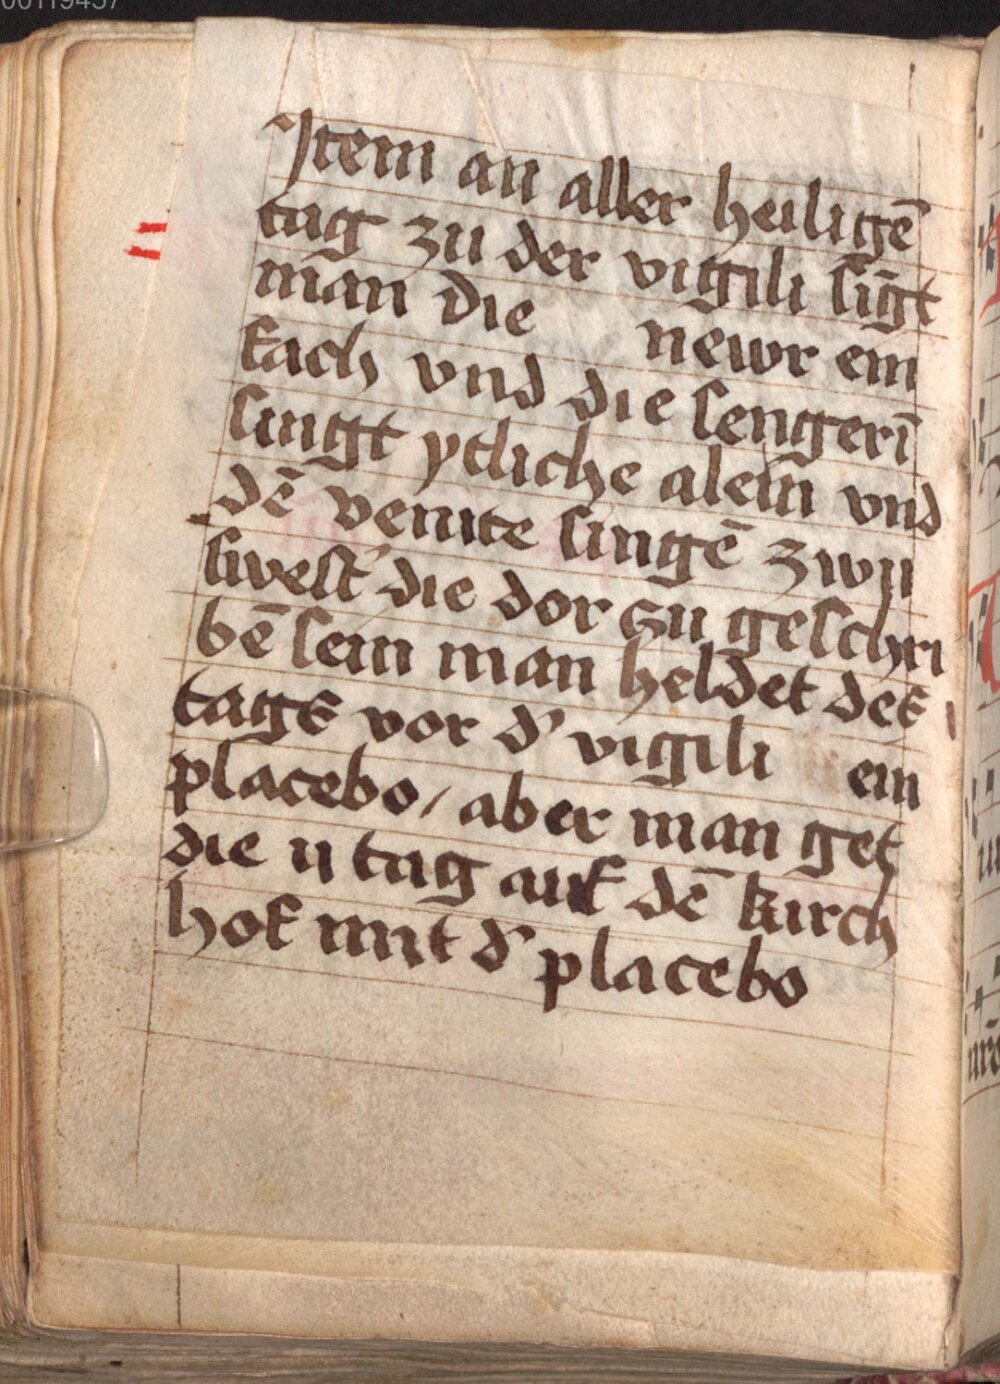 00119457
Jtem an aller heiligē
tag zu der vigili sīgt
man die newr ein
fach vnd die sengerī
singt ytliche alein vnd
dē venite singē zwu
swest' die dor zu geschri
bē sein man heldet des
tags vor d' vigili ein
placebo / aber man get
die ii tag auf dē kirch
hof mit d' placebo